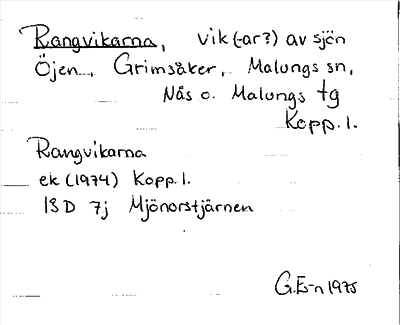 Rangvikarna, vik (-ar?) av sjön
Öjen, Grimsåker, Malungs sn,
Nås o. Malungs tg
Kopp. l.
Rangvikarna
ek (1974) Kopp. l.
13 D 7j Mjönorstjärnen
G.E-n 1975